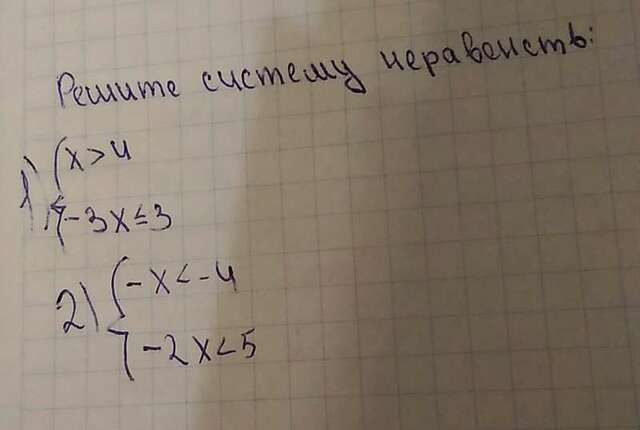 Решите систему неравенств:
1) { x > 4
-3x ≤ 3
2) { -x < -4
-2x < 5